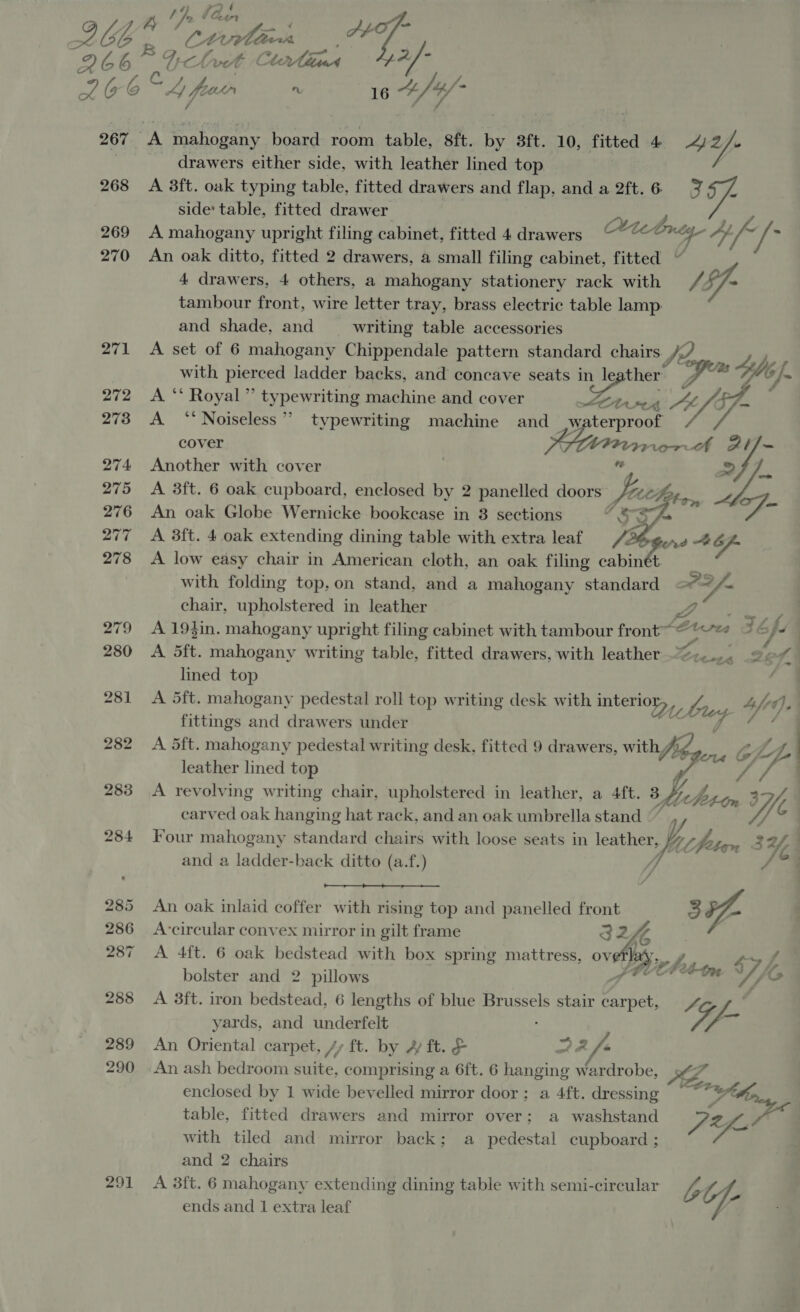 266 Curtains
266 B Velvet Curtains 42/-
266 C 4 pair " 16 4/4/-
267 A mahogany board room table, 8ft. by 3ft. 10, fitted 4 42/-
drawers either side, with leather lined top
268 A 3ft. oak typing table, fitted drawers and flap, and a 2ft. 6 35/-
side table, fitted drawer
269 A mahogany upright filing cabinet, fitted 4 drawers
270 An oak ditto, fitted 2 drawers, a small filing cabinet, fitted
4 drawers, 4 others, a mahogany stationery rack with
tambour front, wire letter tray, brass electric table lamp
and shade, and writing table accessories
271 A set of 6 mahogany Chippendale pattern standard chairs
with pierced ladder backs, and concave seats in leather
272 A “Royal” typewriting machine and cover
273 A “Noiseless” typewriting machine and waterproof
cover
274 Another with cover "
275 A 3ft. 6 oak cupboard, enclosed by 2 panelled doors
276 An oak Globe Wernicke bookcase in 3 sections
277 A 3ft. 4 oak extending dining table with extra leaf
278 A low easy chair in American cloth, an oak filing cabinet
with folding top, on stand, and a mahogany standard 22/-
chair, upholstered in leather
279 A 19½in. mahogany upright filing cabinet with tambour front 36/-
280 A 5ft. mahogany writing table, fitted drawers, with leather
lined top
281 A 5ft. mahogany pedestal roll top writing desk with interior
fittings and drawers under
282 A 5ft. mahogany pedestal writing desk, fitted 9 drawers, with
leather lined top
283 A revolving writing chair, upholstered in leather, a 4ft. 3
carved oak hanging hat rack, and an oak umbrella stand
284 Four mahogany standard chairs with loose seats in leather, 32/6
and a ladder-back ditto (a.f.)
285 An oak inlaid coffer with rising top and panelled front
286 A circular convex mirror in gilt frame 32/6
287 A 4ft. 6 oak bedstead with box spring mattress, overlay,
bolster and 2 pillows
288 A 3ft. iron bedstead, 6 lengths of blue Brussels stair carpet,
yards, and underfelt
289 An Oriental carpet, ft. by ft. 22/-
290 An ash bedroom suite, comprising a 6ft. 6 hanging wardrobe,
enclosed by 1 wide bevelled mirror door; a 4ft. dressing
table, fitted drawers and mirror over; a washstand
with tiled and mirror back; a pedestal cupboard;
and 2 chairs
291 A 3ft. 6 mahogany extending dining table with semi-circular
ends and 1 extra leaf